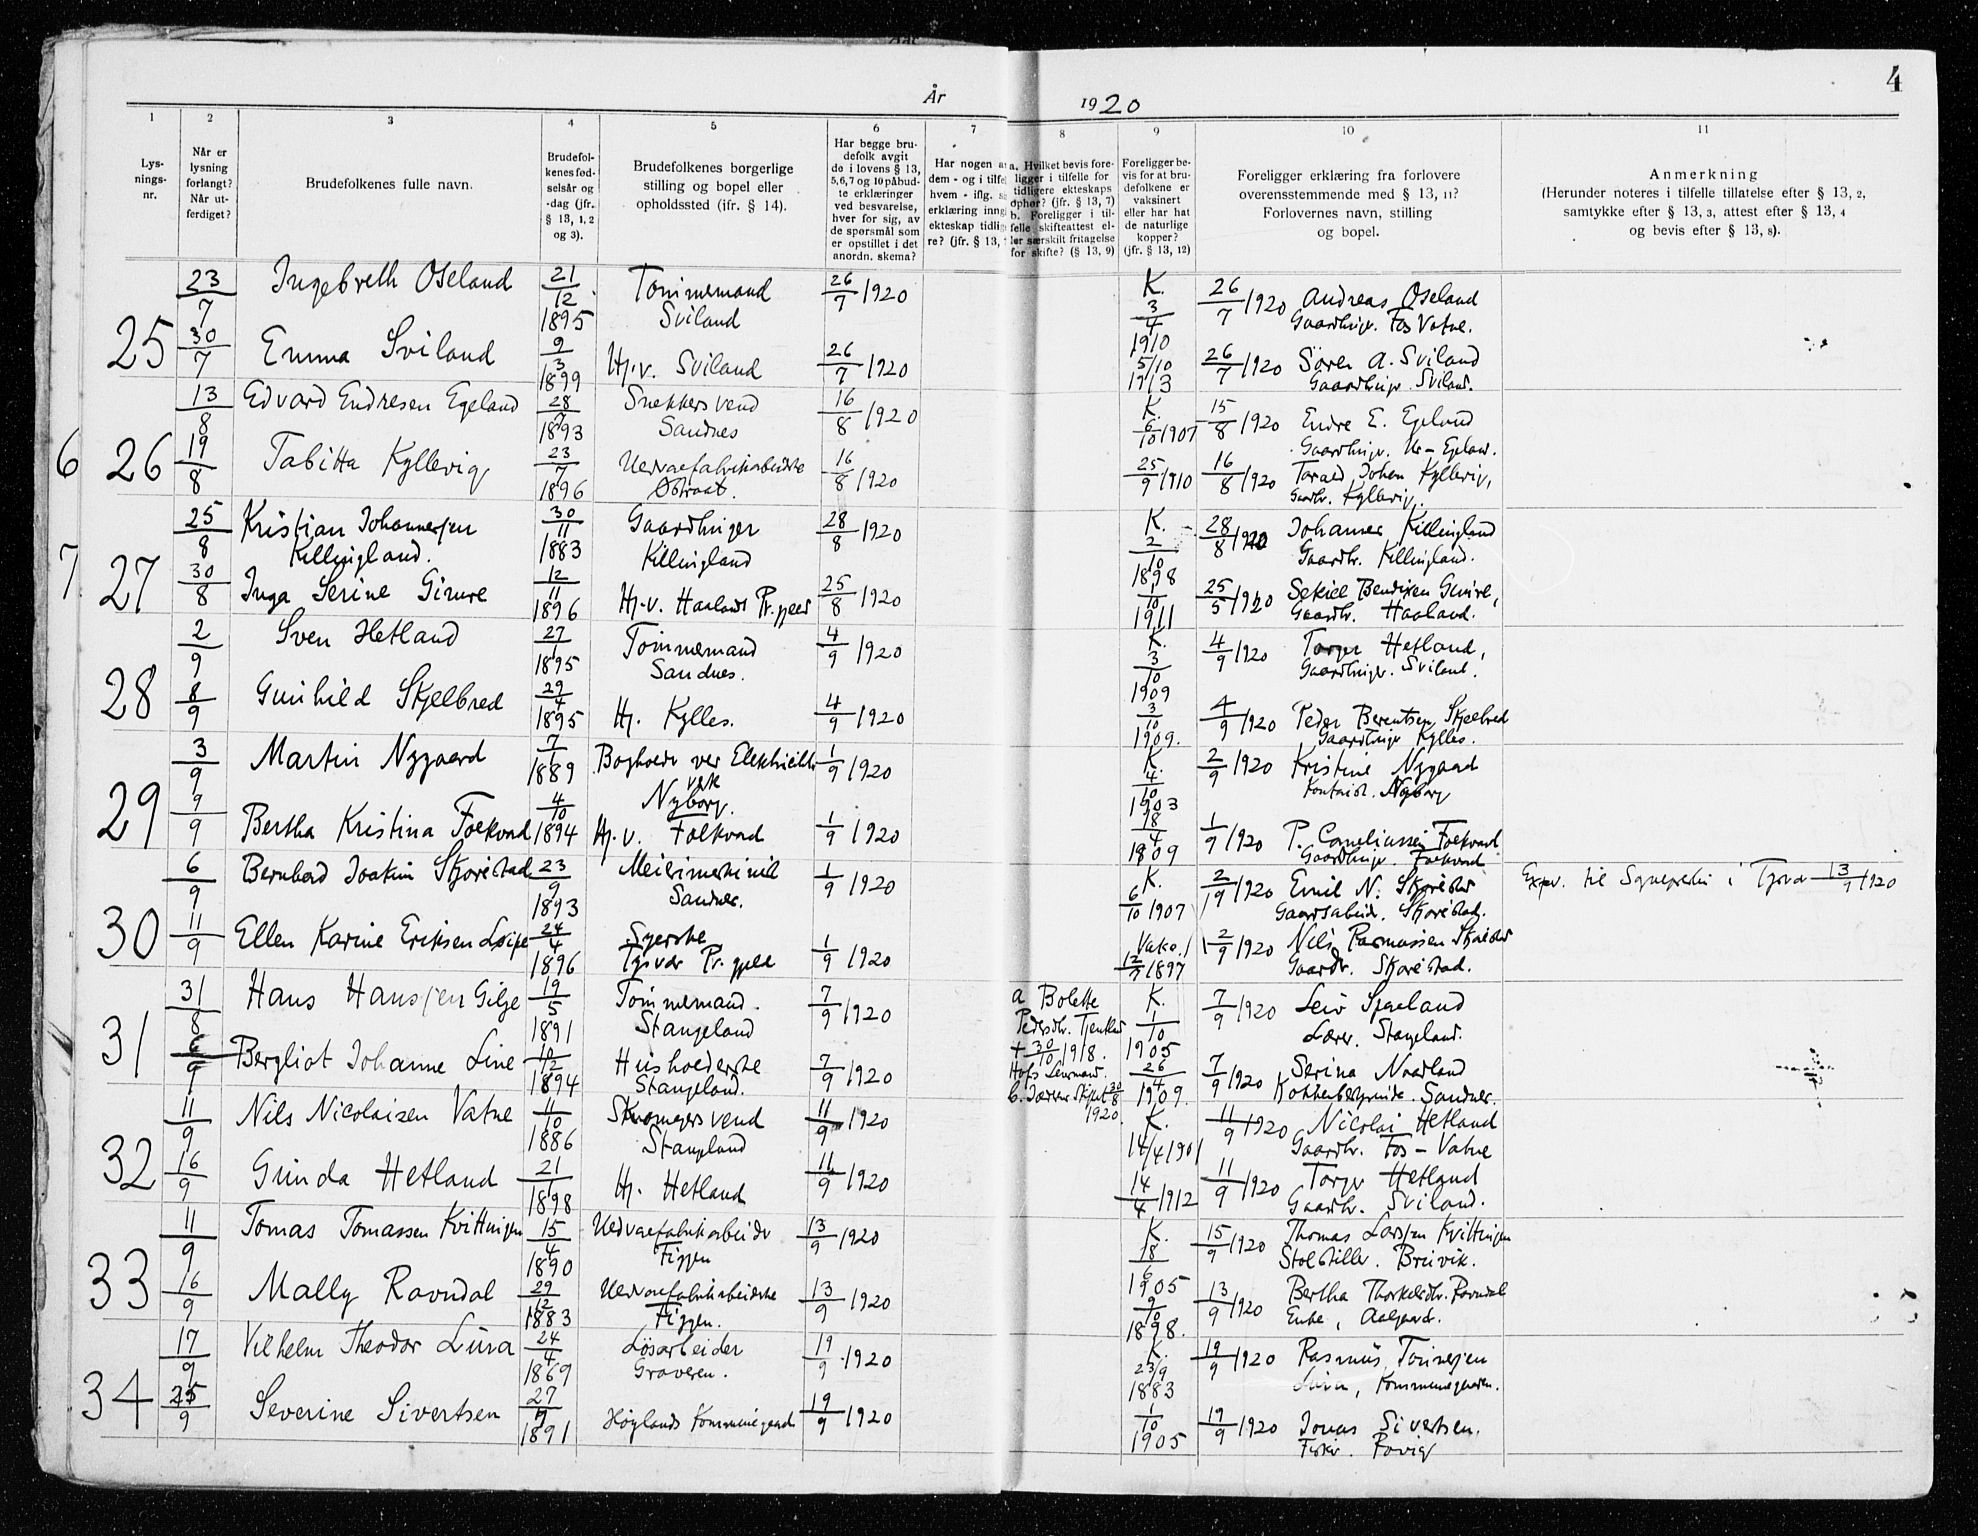 4
År 1920
1 2 3 4 5 6 7 8 9 10 11
Lys-
nings-
nr.
Når er
lysning
forlangt?
Når ut-
ferdiget?
Brudefolkenes fulle navn.
Brudefol-
kenes fød-
selsår og
-dag (jfr.
§ 13, 1, 2
og 3).
Brudefolkenes borgerlige
stilling og bopel eller
opholdssted (ifr. § 14).
Har begge bru-
defolk avgit
de i lovens § 13,
5,6,7 og 10 påbud-
te erklæringer
ved besvarelse,
hver for sig, av
de spørsmål som
er opstillet i det
anordn. skema?
Har nogen a
dem - og i tilfe
hvem - iflg. s
erklæring inng
ekteskap tidlig
re? (jfr. § 13,
a. Hvilket bevis fore-
ligger i tilfelle for
tidligere ekteskaps
ophør? (jfr. § 13, 7)
b. Foreligger i til-
felle skifteattest el-
ler særskilt fritagelse
for skifte? (§ 13, 9)
Foreligger be-
vis for at bru-
defolkene er
vaksinert
eller har hat
de naturlige
kopper?
(jfr. § 13, 12)
Foreligger erklæring fra forlovere
overensstemmende med § 13, 11?
Forlovernes navn, stilling
og bopel.
Anmerkning
(Herunder noteres i tilfelle tillatelse efter § 13, 2,
samtykke efter § 13, 3, attest efter § 13, 4
og bevis efter § 13, 8).
25 23/7 Ingebreth Oseland 21/12 1895 Tømmermand Sviland 26/7 1920 K. 3/4 1910 26/7 1920 Andreas Oseland
Gaardbruger. Fos Vatne.
30/7 Emma Sviland 9/3 1899 Hj.v. Sviland 26/7 1920 5/10 1913 26/7 1920 Sören A. Sviland
Gaardbruger. Sviland.
6 26 13/8 Edvard Endresen Egeland 28/7 1893 Snekkersvend Sandnes 16/8 1920 K. 6/10 1907 15/8 1920 Endre E. Egeland
Gaardbruger.
19/8 Tabitta Kyllevig 23/7 1896 16/8 1920 25/9 1910 16/8 1920 Tarald Johan Kyllevig,
Gaardbr. Kyllevig.
7 27 25/8 Kristian Johannesen
Killingland. 30/11 1883 Gaardbruger Killingland 28/8 1920 K. 2/10 1898 28/8 1920 Johannes Killingland
Gaardbr. Killingland.
30/8 Inga Serine Gimre 12/11 1896 Hj.v. Haalands Pr.gjeld 25/8 1920 1/10 1911 25/5 1920 Bendixen Gimre,
Gaardbr. Haaland.
28 2/9 Sven Hetland 27/1 1895 Tømmermand Sandnes. 4/9 1920 K. 3/10 1909 4/9 1920 Torger Hetland,
Gaardbruger. Sviland.
8/9 Gunhild Skjelbred 29/4 1895 Hj. Kylles. 4/9 1920 3/10 1909. 4/9 1920 Peder Berentsen Skjelbred
Gaardbruger Kylles.
29 3/9 Martin Nygaard 7/1 1889 Bogholder ved
verk
Nyborg. 1/9 1920 K. 4/10 1903 2/9 1920 Kristine Nygaard
Nyborg
9/9 Bertha Kristina Folkvord 4/10 1894 Hj.v. Folkvord 1/9 1920 18/4 1809 1/9 1920 P. Corneliussen Folkvord
Gaardbruger. Folkvord
30 6/9 Bernhard Joakim Skjørestad 23/9 1893 Meierimaskinist
Sandnes. 1/9 1920 K. 6/10 1907 2/9 1920 Emil N. Skjørestad
Gaardsarbeid. Skjørestad. til i 13/9 1920
11/9 Ellen Karine Eriksen 24/4 1896 Syerske
Tysvær Pr. gjeld 1/9 1920 Vakc. 12/7 1897 2/9 1920 Nils Rasmussen Skjørestad
Gaardbr. Skjørestad.
31 31/8 Hans Hansen Gilje 19/5 1891 Tømmermand.
Stangeland 7/9 1920 a Bolette
Pedersdtr.
+ 30/10 1918.
K. 1/10 1905 7/9 1920
Lærer. Stangeland.
6/9 Bergliot Johanne Line 10/12 1894 Husholderske
Stangeland. 7/9 1920 30/8
1920. 26/4 1909. 7/9 1920 Serina Nordland
Sandnes.
32 11/9 Nils Nicolaisen Vatne 11/10 1886
Stangeland 11/9 1920 K. 14/4 1901 11/9 1920 Nicolai Hetland
Gaardbr. Fos-Vatne
16/9 Gunda Hetland 21/1 1898 Hj. Hetland 11/9 1920 14/4 1912 11/9 1920 Torger Hetland
Gaardbr. Sviland.
33 11/9 Tomas Tomassen Kvittingen 15/4 1890 Uldvarefabrikarbeider
Figgen 13/9 1920 K. 18/6 1905 15/9 1920 Thomas Larssen Kvittingen
Bruvik.
16/9 Mally Ravndal 29/12 1883 Uldvarefabrikarbeiderske
Figgen. 13/9 1920 9/10 1898. 13/9 1920 Bertha Thorkelsdtr. Ravndal
Enke, Aalgaard.
34 17/9 Vilhelm Theodor Lura 24/4 1869 Løsarbeider
Graveren. 19/9 1920 K. 23/9 1883 19/9 1920 Rasmus Tønnesen
Lura, Kommunegaarden.
25/9 Severine Sivertsen 27/9 1891 Høylands Kommunegaard 19/9 1920 1/10 1905 19/9 1920 Jonas Sivertsen.
Fisker.